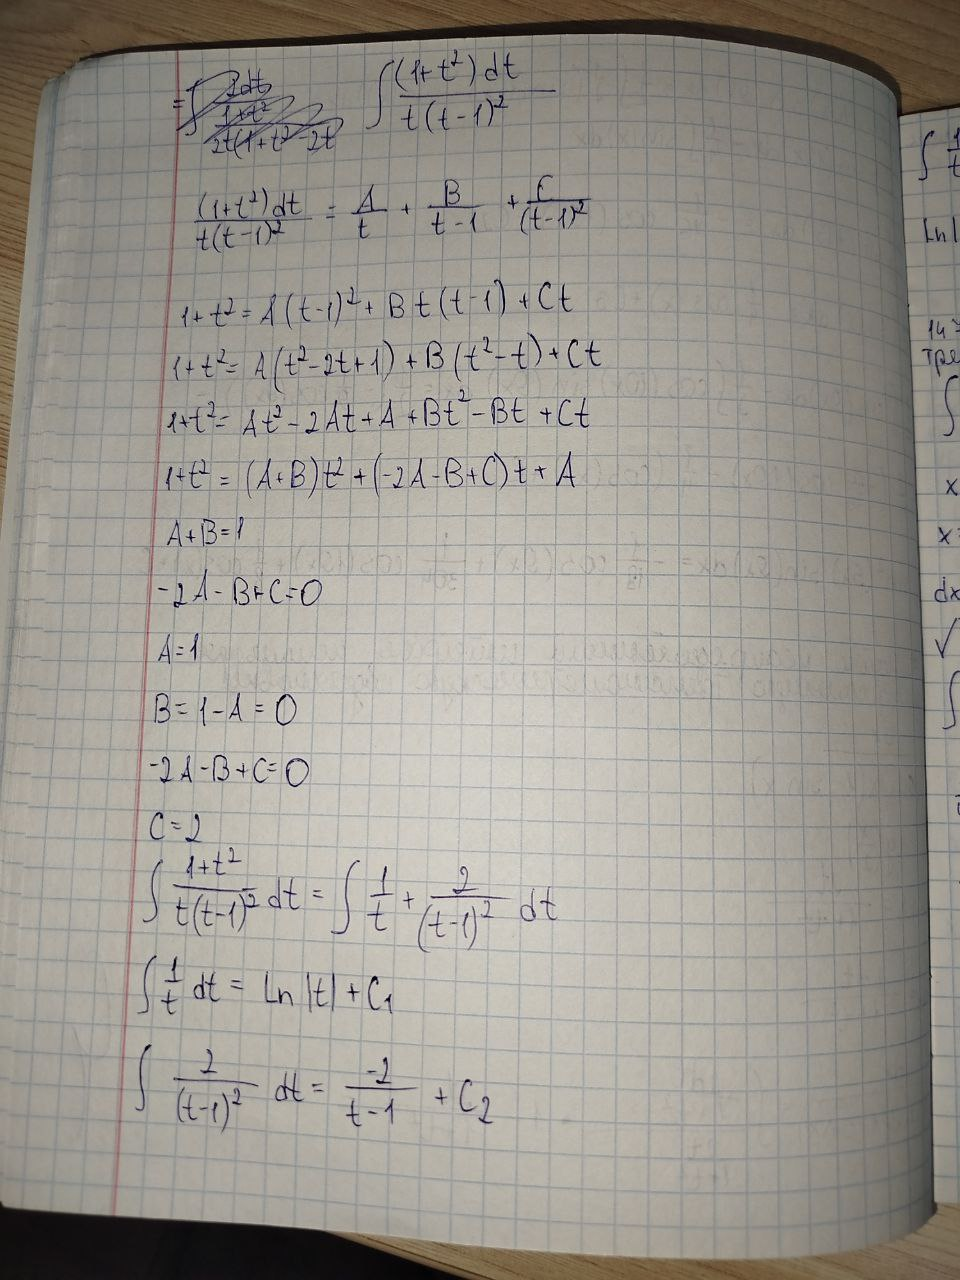 = ∫ 2dt / (1+t² / 2t(1+t²-2t   ∫ (1+t²)dt / t(t-1)²
(1+t²)dt / t(t-1)² = A/t + B/(t-1) + C/(t-1)²
1+t² = A(t-1)² + Bt(t-1) + Ct
1+t² = A(t²-2t+1) + B(t²-t) + Ct
1+t² = At² - 2At + A + Bt² - Bt + Ct
1+t² = (A+B)t² + (-2A-B+C)t + A
A+B=1
-2A-B+C=0
A=1
B=1-A=0
-2A-B+C=0
C=2
∫ 1+t² / t(t-1)² dt = ∫ 1/t + 2/(t-1)² dt
∫ 1/t dt = Ln|t| + C₁
∫ 2/(t-1)² dt = -2/(t-1) + C₂
∫ 1/t
Ln|
147
тре
∫
x
x=
dx
√
∫